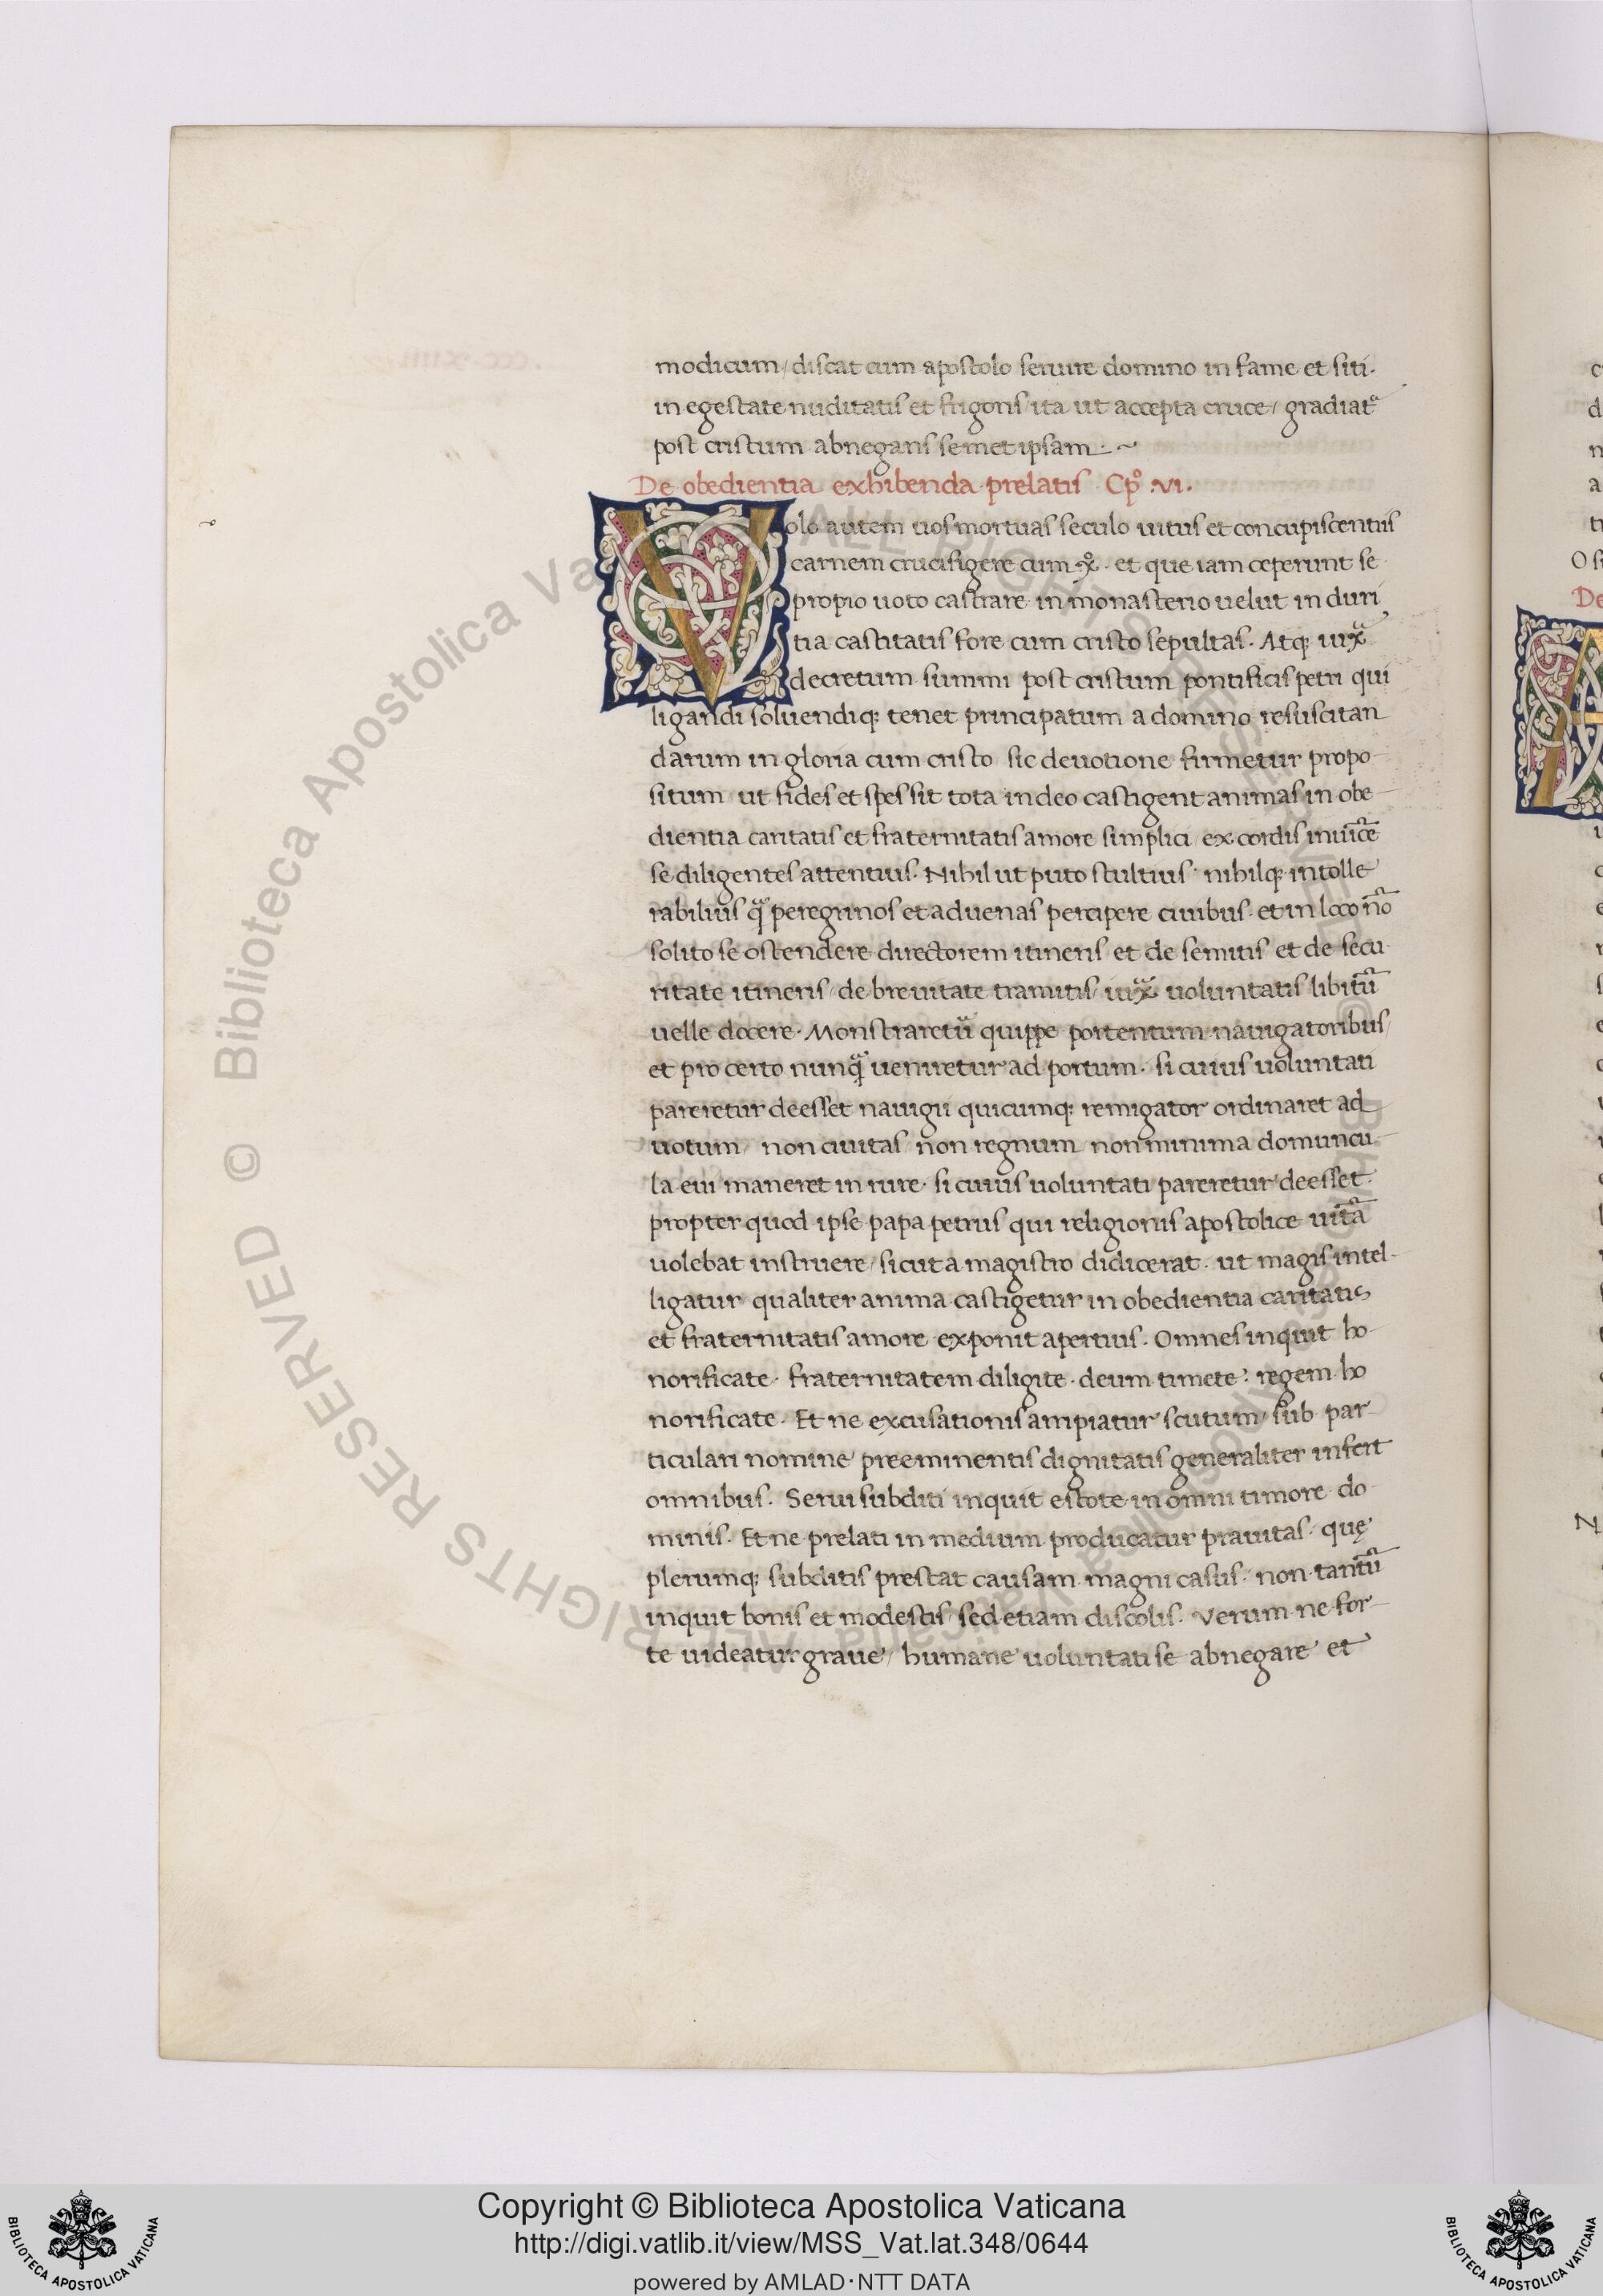 modicum / discat cum apostolo seruire domino in fame et siti.
in egestate nuditatis et frigoris / ita ut accepta cruce / gradiat᷑
post cristum abnegans semet ipsam . ~
De obedientia exhibenda prelatis Cp̊ .vi.
Volo autem uos mortuas seculo uitiis et concupiscentiis
carnem crucifigere cum xp̊. et que iam ceperunt se
proprio uoto castrare in monasterio uelut in duri
tia castitatis fore cum cristo sepultas. Atq; iuxᷓ
decretum summi post cristum pontificis petri qui
ligandi soluendiq; tenet principatum a domino resuscitan
darum in gloria cum cristo sic deuotione firmetur propo-
situm ut fides et spes sit tota in deo castigent animas in obe-
dientia caritatis et fraternitatis amore simplici ex cordis inuicē
se diligentes attentius. Nihil ut puto stultius nihilq; intolle
rabilius qᷓ peregrinos et aduenas percipere ciuibus et in loco nō
solito se ostendere directorem itineris et de semitis et de secu-
ritate itineris / de breuitate tramitis / iuxᷓ uoluntatis libitū
uelle docere. Monstraretur̄ quippe portentum nauigatoribus /
et pro certo nunqᷓ ueniretur ad portum. si cuius uoluntati
pareretur deesset nauigii quicumq; remigator ordinaret ad
uotum / non ciuitas non regnum non minima domuncu-
la eui maneret in rure. si cuius uoluntati pareretur deesset.
propter quod ipse papa petrus qui religionis apostolice uitā
uolebat instruere / sicut a magistro didicerat. ut magis intel-
ligatur qualiter anima castigetur in obedientia caritatis
et fraternitatis amore exponit apertius. Omnes inquit ho-
norificate. fraternitatem diligite. deum timete: regem ho
norificate. Et ne excusationis arripiatur scutum / sub par-
ticulari nomine preeminentis dignitatis generaliter infert
omnibus. Serui subditi inquit estote in omni timore do-
minis. Et ne prelati in medium producatur prauitas. quę
plerumq; subditis prestat causam magni casus: non tantū
inquit bonis et modestis / sed etiam discolis. Verum ne for-
te uideatur graue / humane uoluntati se abnegare et
Copyright © Biblioteca Apostolica Vaticana
http://digi.vatlib.it/view/MSS_Vat.lat.348/0644
powered by AMLAD·NTT DATA
BIBLIOTECA APOSTOLICA VATICANA
BIBLIOTECA APOSTOLICA VATICANA
© Biblioteca Apostolica Vaticana ALL RIGHTS RESERVED
© Biblioteca Apostolica Vaticana ALL RIGHTS RESERVED